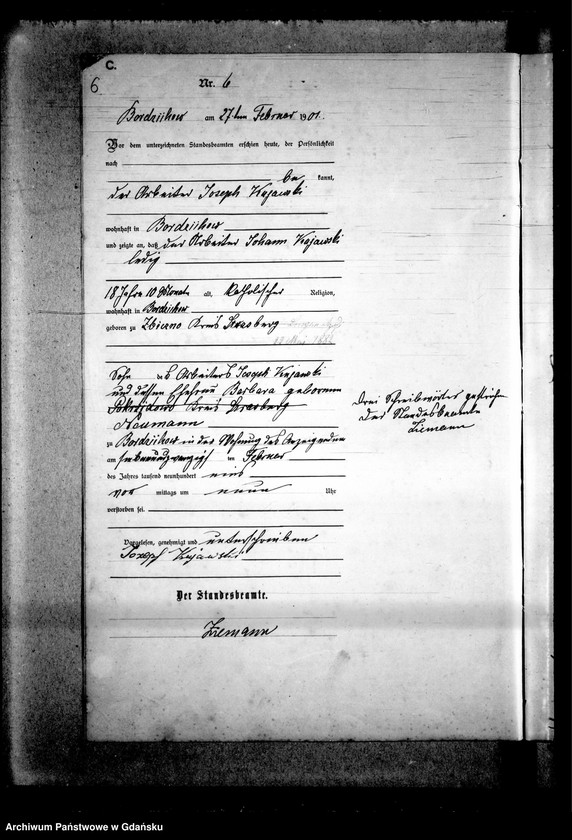 C.
6
Nr. 6
Bordzichow am 27ten Februar 1901.
Vor dem unterzeichneten Standesbeamten erschien heute, der Persönlichkeit
nach
be kannt,
der Arbeiter Joseph Kujawski
wohnhaft in Bordzichow
und zeigte an, daß der Arbeiter Johann Kujawski
ledig
18 Jahre 10 Monate alt, katholischer Religion,
wohnhaft in Bordzichow
geboren zu Zbiczno Kreis Strasberg
Sohn des Arbeiters Joseph Kujawski
und dessen Ehefrau Barbara geborenen
Kreis Strasberg
Naumann
zu Bordzichow in der Wohnung des Anzeigenden
am siebenundzwanzigsten Februar
des Jahres tausend neunhundert eins
vor mittags um neun Uhr
verstorben sei.
Drei Schreibwörter gestrichen
Der Standesbeamte
Ziemann
Vorgelesen, genehmigt und unterschrieben
Joseph Kujawski
Der Standesbeamte.
Ziemann
Archiwum Państwowe w Gdańsku